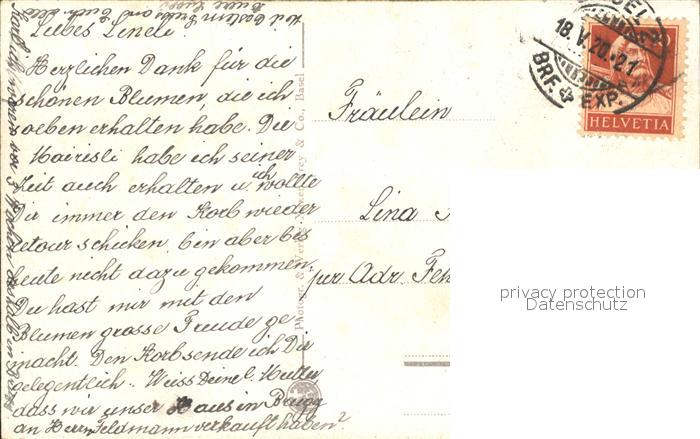 Liebes Lineli
Herzlichen Dank für die
schönen Blumen, die ich
soeben erhalten habe. Die
Mairisli habe ich seiner
Zeit auch erhalten u. ich wollte
Dir immer den Korb wieder
retour schicken, bin aber bis
heute nicht dazu gekommen.
Du hast mir mit den
Blumen grosse Freude ge
macht. Den Korb sende ich Dir
gelegentlich. Weiss Deine l. Mutter
dass wir unser Haus in Brugg
an Herrn Feldmann verkauft haben?
Photogr. & Verlag Frey & Co., Basel
Fräulein
Lina
pr Adr. Feh
18.V.20.-21
BRF. EXP.
HELVETIA
privacy protection
Datenschutz